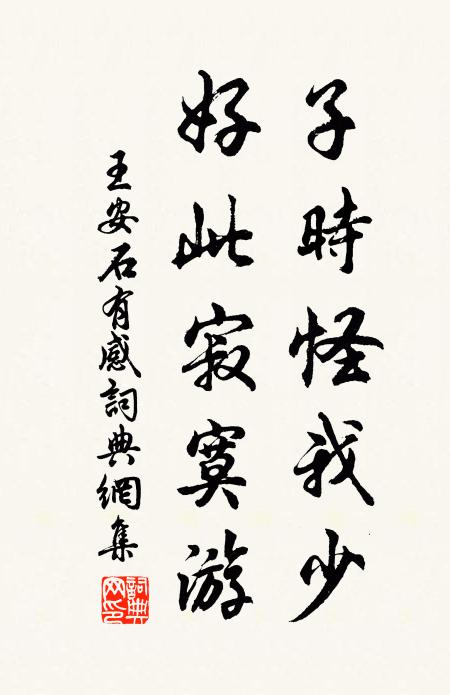 子時怪我少
好此寂寞游
王安石有感詞典網集
詞典網印